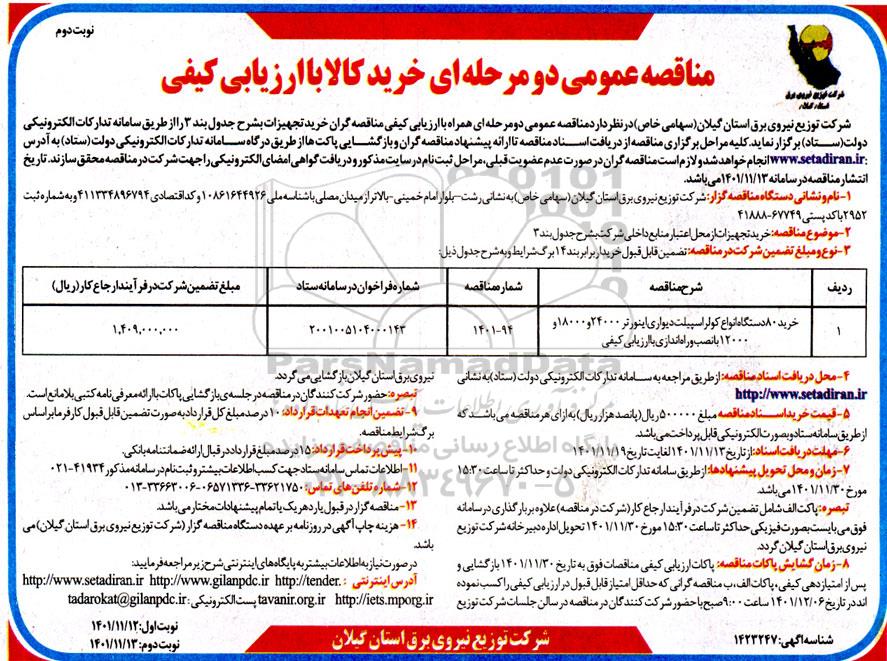 نوبت دوم
شرکت توزیع نیروی برق
استان گیلان
مناقصه عمومی دو مرحله ای خرید کالا با ارزیابی کیفی
شرکت توزیع نیروی برق استان گیلان (سهامی خاص) در نظر دارد مناقصه عمومی دو مرحله ای همراه با ارزیابی کیفی مناقصه گران خرید تجهیزات بشرح جدول بند ۳ را از طریق سامانه تدارکات الکترونیکی
دولت (ستاد) برگزار نماید. کلیه مراحل برگزاری مناقصه از دریافت اسناد مناقصه تا ارائه پیشنهاد مناقصه گران و بازگشایی پاکت ها از طریق درگاه سامانه تدارکات الکترونیکی دولت (ستاد) به آدرس
www.setadiran.ir: انجام خواهد شد و لازم است مناقصه گران در صورت عدم عضویت قبلی، مراحل ثبت نام در سایت مذکور و دریافت گواهی امضای الکترونیکی را جهت شرکت در مناقصه محقق سازند. تاریخ
انتشار مناقصه در سامانه ۱۴۰۱/۱۱/۱۳ می باشد.
۱- نام و نشانی دستگاه مناقصه گزار: شرکت توزیع نیروی برق استان گیلان (سهامی خاص) به نشانی رشت - بلوار امام خمینی - بالاتر از میدان مصلی با شناسه ملی ۱۰۸۶۱۶۴۴۹۲۶ و کد اقتصادی ۴۱۱۳۳۴۸۹۶۷۹۴ و به شماره ثبت
۲۹۵۲ با کد پستی ۶۷۷۴۹-۴۱۸۸۸
۲- موضوع مناقصه: خرید تجهیزات از محل اعتبار منابع داخلی شرکت بشرح جدول بند ۳
۳- نوع و مبلغ تضمین شرکت در مناقصه: تضمین قابل قبول خریدار برابر بند ۱۴ برگ شرایط و به شرح جدول ذیل:
ردیف شرح مناقصه شماره مناقصه شماره فراخوان در سامانه ستاد مبلغ تضمین شرکت در فرآیند ارجاع کار (ریال)
۱ خرید ۸۰ دستگاه انواع کولر اسپیلت دیواری اینورتر ۲۴۰۰۰ و ۱۸۰۰۰ و ۱۴۰۱-۹۴ ۲۰۰۱۰۰۵۱۰۴۰۰۰۱۴۳ ۱,۴۰۹,۰۰۰,۰۰۰
۱۲۰۰۰ با نصب و راه اندازی با ارزیابی کیفی
۴- محل دریافت اسناد مناقصه: از طریق مراجعه به سامانه تدارکات الکترونیکی دولت (ستاد) به نشانی
http://www.setadiran.ir
۵- قیمت خرید اسناد مناقصه مبلغ ۵۰۰۰۰۰ ریال (پانصد هزار ریال) به ازای هر مناقصه می باشد که
از طریق سامانه ستاد و بصورت الکترونیکی قابل پرداخت می باشد.
۶- مهلت دریافت اسناد: از تاریخ ۱۴۰۱/۱۱/۱۳ لغایت تاریخ ۱۴۰۱/۱۱/۱۹
۷- زمان و محل تحویل پیشنهادها: از طریق سامانه تدارکات الکترونیکی دولت و حداکثر تا ساعت ۱۵:۳۰
مورخ ۱۴۰۱/۱۱/۳۰ می باشد.
تبصره: پاکت الف شامل تضمین شرکت در فرآیند ارجاع کار (شرکت در مناقصه) علاوه بر بارگذاری در سامانه
فوق می بایست بصورت فیزیکی حداکثر تا ساعت ۱۵:۳۰ مورخ ۱۴۰۱/۱۱/۳۰ تحویل اداره دبیرخانه شرکت توزیع
نیروی برق استان گیلان گردد.
۸- زمان گشایش پاکات مناقصه: پاکات ارزیابی کیفی مناقصات فوق به تاریخ ۱۴۰۱/۱۱/۳۰ بازگشایی و
پس از امتیازدهی کیفی، پاکات الف، ب مناقصه گرانی که حداقل امتیاز قابل قبول در ارزیابی کیفی را کسب نموده
اند در تاریخ ۱۴۰۱/۱۲/۰۶ ساعت ۹:۰۰ صبح با حضور شرکت کنندگان در مناقصه در سالن جلسات شرکت توزیع
نیروی برق استان گیلان بازگشایی می گردد.
تبصره: حضور شرکت کنندگان در مناقصه در جلسه ی بازگشایی پاکات با ارائه معرفی نامه کتبی بلامانع است.
۹- تضمین انجام تعهدات قرارداد: ۱۰ درصد مبلغ کل قرارداد به صورت تضمین قابل قبول کارفرما براساس
برگ شرایط مناقصه.
۱۰- پیش پرداخت قرارداد: ۱۵ درصد مبلغ قرارداد در قبال ارائه ضمانتنامه بانکی.
۱۱- اطلاعات تماس سامانه ستاد جهت کسب اطلاعات بیشتر و ثبت نام در سامانه مذکور ۴۱۹۳۴-۰۲۱
۱۲- شماره تلفن های تماس: ۳۳۶۲۱۷۵۰-۰۶۵۷۱۳۳۶-۳۳۶۶۳۰۰۶-۰۱۳
۱۳- مناقصه گزار در قبول یا رد هر یک یا تمام پیشنهادات مختار می باشد.
۱۴- هزینه چاپ آگهی در روزنامه بر عهده دستگاه مناقصه گزار (شرکت توزیع نیروی برق استان گیلان) می
باشد.
در صورت نیاز به اطلاعات بیشتر به پایگاه های اینترنتی شرح زیر مراجعه فرمایید:
آدرس اینترنتی: http://www.setadiran.ir http://www.gilanpdc.ir http://tender.
tavanir.org.ir http://iets.mporg.ir پست الکترونیکی: tadarokat@gilanpdc.ir
شناسه آگهی: ۱۴۲۳۲۴۷
شرکت توزیع نیروی برق استان گیلان
نوبت اول: ۱۴۰۱/۱۱/۱۲
نوبت دوم: ۱۴۰۱/۱۱/۱۳
ParsNamadData
پایگاه اطلاع رسانی مناقصه و مزایده